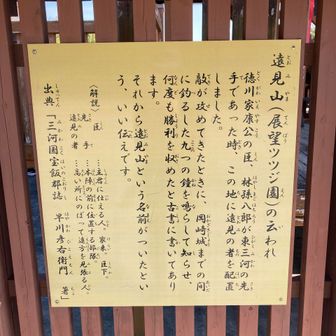 遠見山(展望ツツジ園)の云われ
徳川家康公の臣、林孫八郎が東三河の先
手であった時、この地に遠見の者を配置
しました。
敵が攻めてきたときに、岡崎城までの間
に釣るした九つの鐘を鳴らして知らせ、
何度も勝利を収めたと古書に書いてあり
ます。
それから遠見山という名前がついたとい
う、いい伝えです。
〈解説〉
臣 …主君に仕える人 家来、臣下
先手 …本陣の前に位置する部隊。
遠見の者 …高い所にのぼって遠方を見張る人。
出典「三河国宝飯郡誌 早川彦右衛門 著」